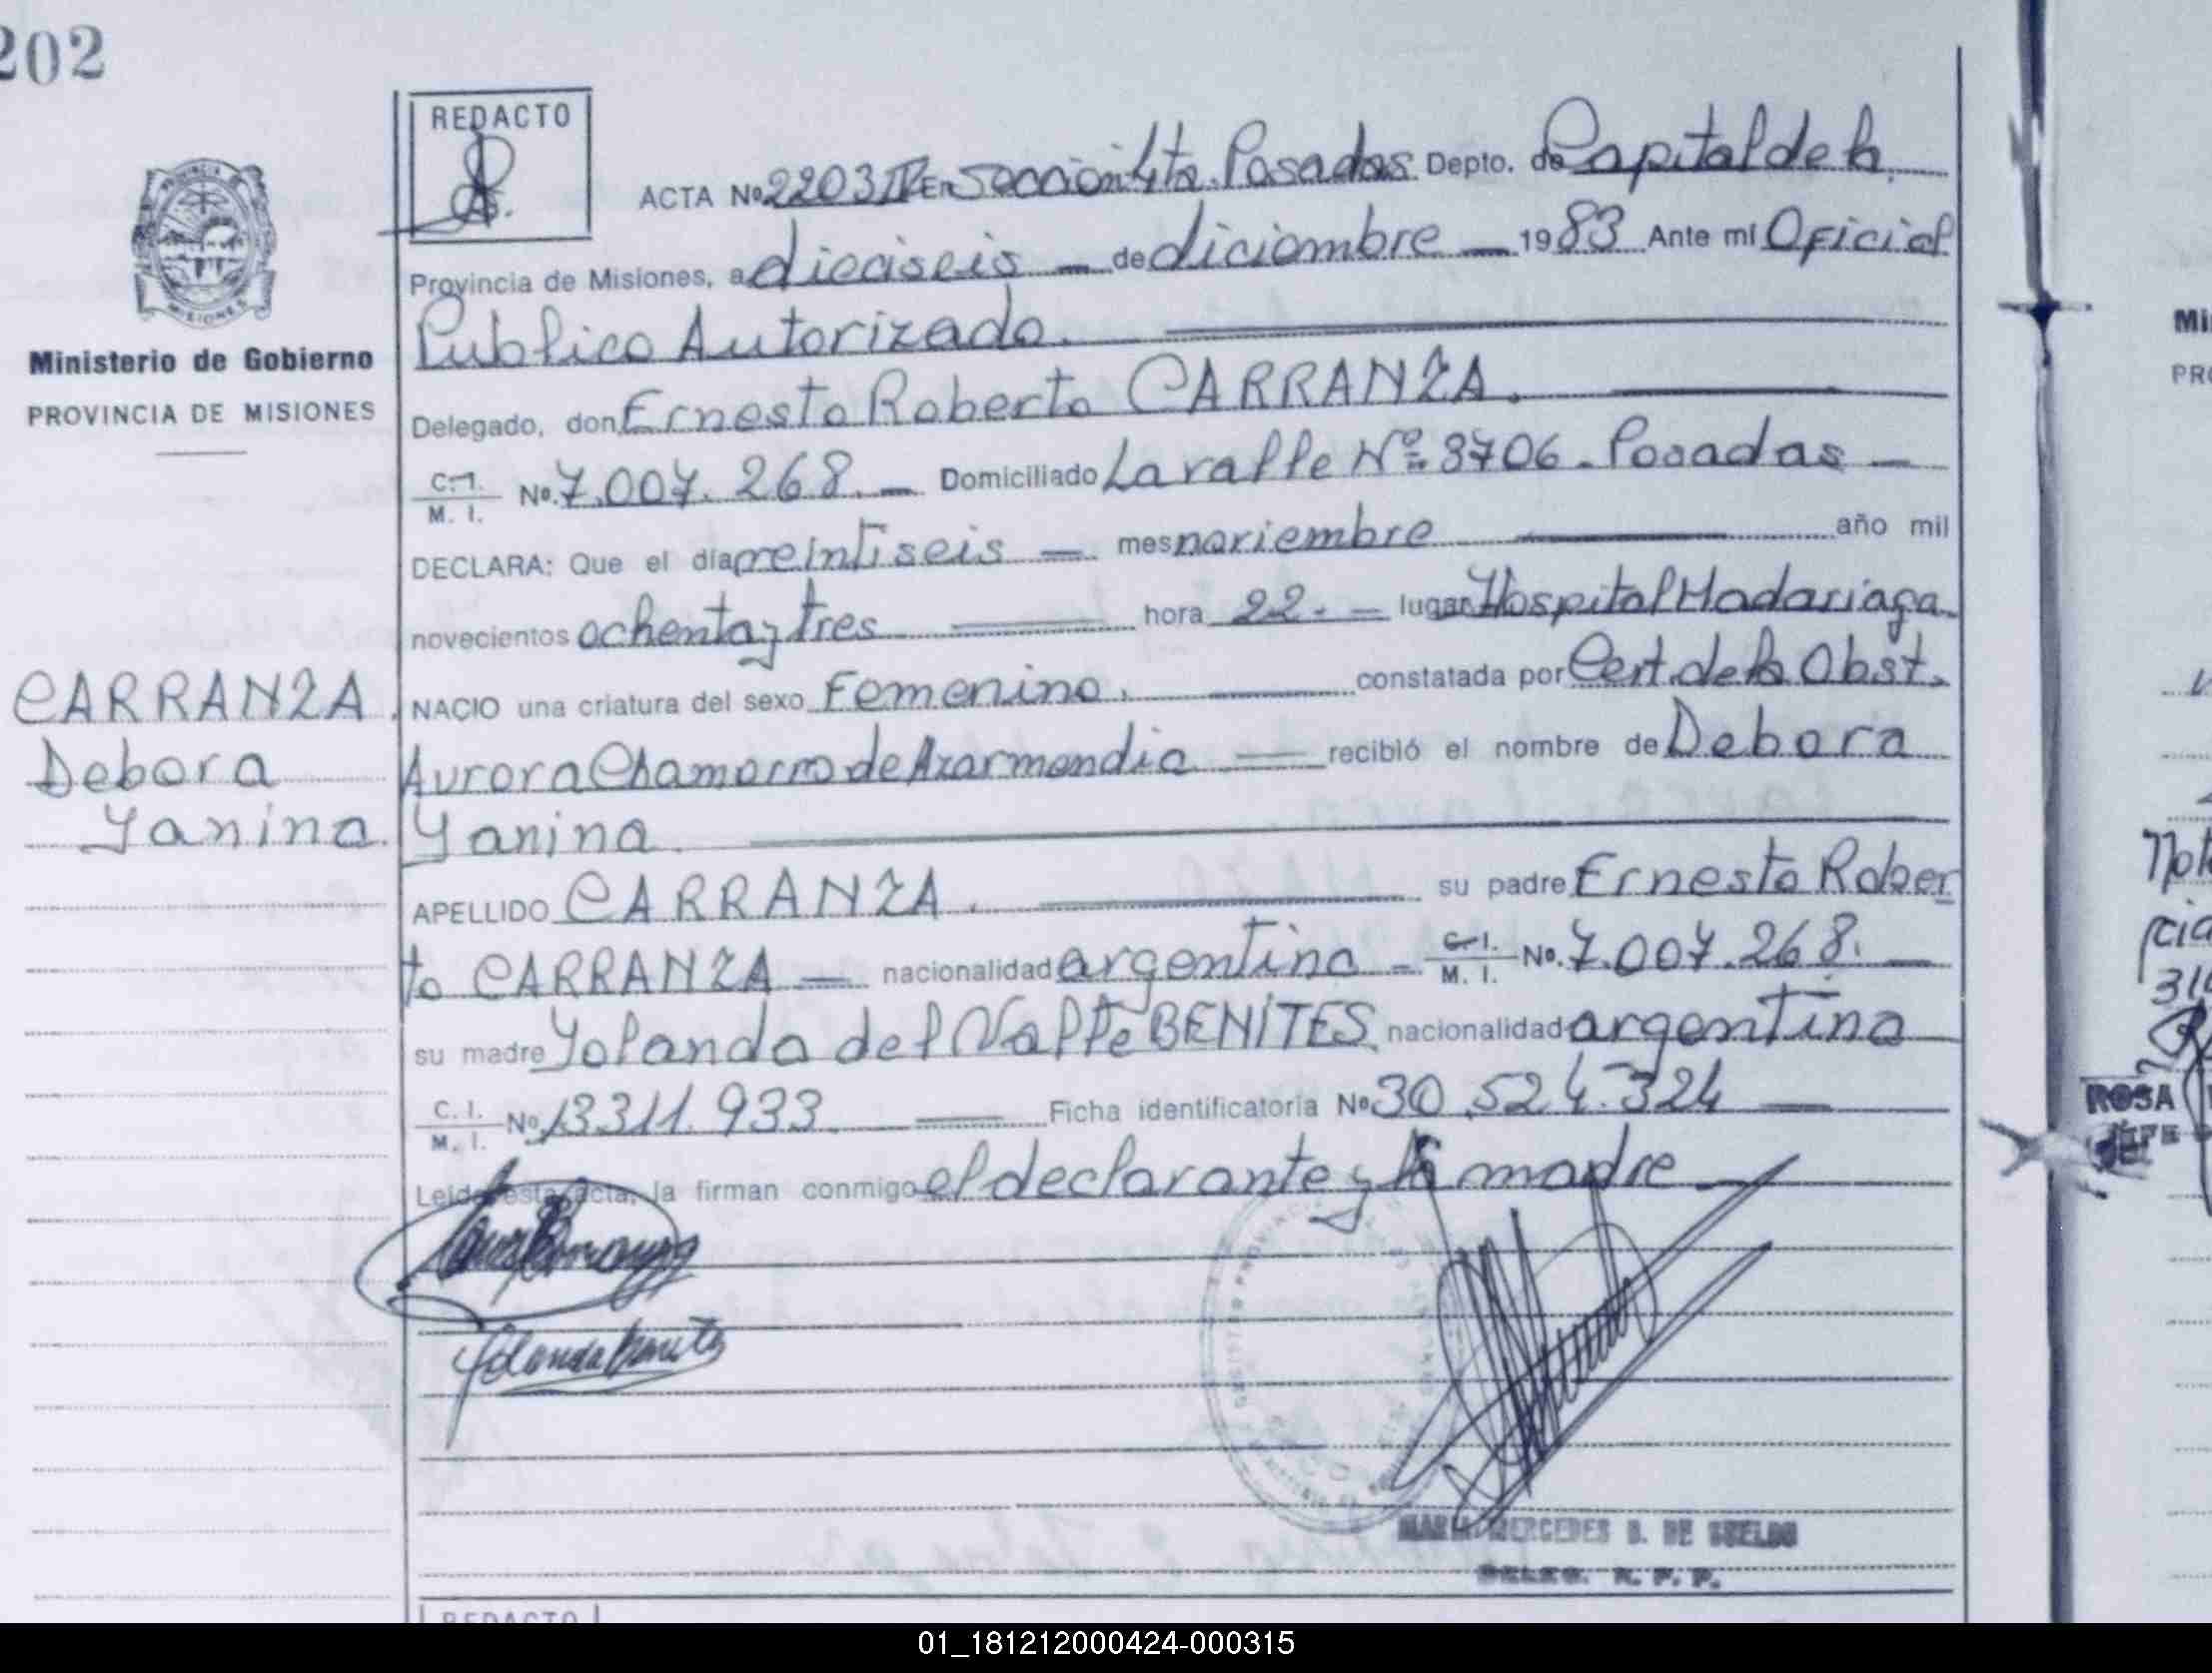 202
REDACTO
ACTA Nº 2203 IV En Sección 4ta. Posadas Depto. de Capital de la
Provincia de Misiones, a dieciseis — de diciembre — 1983 Ante mí Oficial
Publico Autorizado.
Delegado, don Ernesto Roberto CARRANZA.
C. I. M. I. Nº. 7.007.268. — Domiciliado Lavalle Nº 3706. Posadas —
DECLARA: Que el día veintiseis — mes noviembre — año mil
novecientos ochenta y tres — hora 22. — lugar Hospital Madariaga.
NACIO una criatura del sexo Femenino. — constatada por Cert. de la Obst.
Aurora Chamorro de Azarmendia — recibió el nombre de Debora
Yanina.
APELLIDO CARRANZA. — su padre Ernesto Rober
to CARRANZA — nacionalidad argentina - C. I. M. I. Nº. 7.007.268. —
su madre Yolanda del Valle BENITES nacionalidad argentina
C. I. M. I. Nº 13311.933. — Ficha identificatoria Nº 30.524.324 —
Leída esta acta, la firman conmigo el declarante y la madre —
Yolanda Benites
MARIA MERCEDES B. DE SUELDO
DELEG. R. P. P.
Ministerio de Gobierno
PROVINCIA DE MISIONES
CARRANZA.
Debora
Yanina.
REDACTO
ROSA
JEFE
01_181212000424-000315